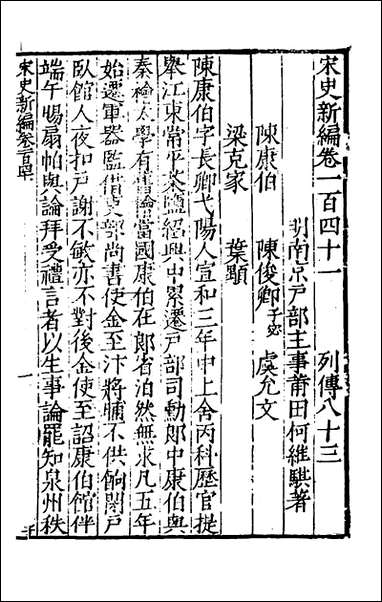 宋史新編卷一百四十一　列傳八十三
明南京戶部主事莆田何維騏著
陳康伯　陳俊卿子宓　虞允文
梁克家　葉顒
陳康伯字長卿弋陽人宣和三年中上舍丙科歷官提
舉江東常平茶鹽紹興中累遷戶部司勲郎中康伯與
秦檜太學有舊檜當國康伯在郎省泊然無求凡五年
始遷軍器監借吏部尚書使金至汴將晡不供餉閉戶
臥館人夜扣戶謝不敏亦不對後金使至詔康伯館伴
端午賜扇帕與論拜受禮言者以生事論罷知泉州秩
宋史新編卷一百四十一
一